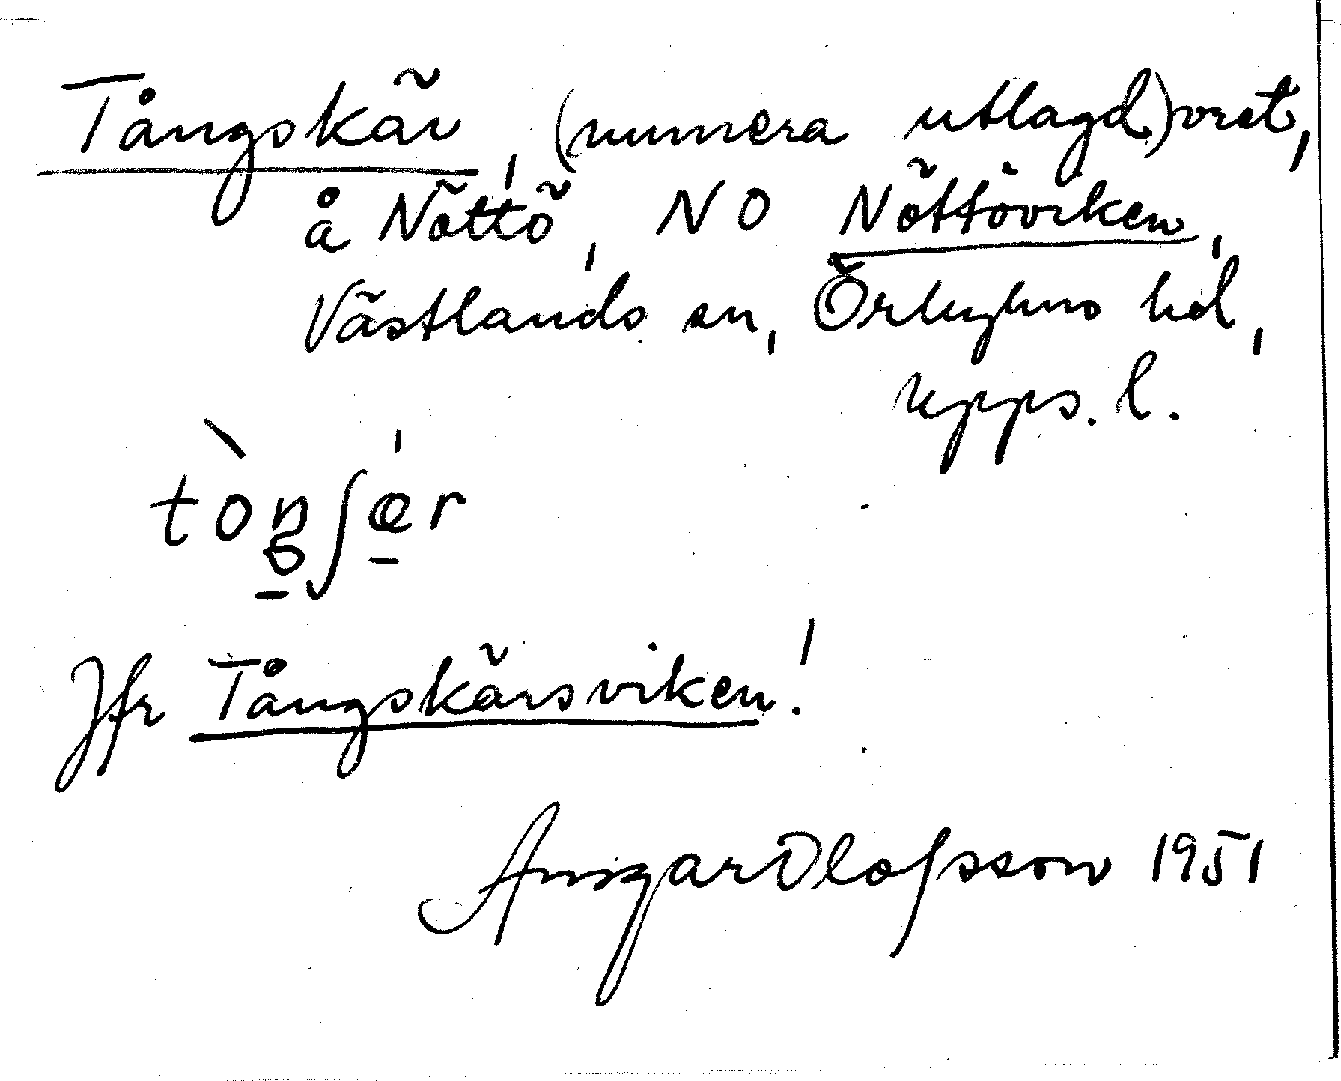 Tångskär, (numera utlagd) vret,
å Nöttö, NO Nöttöviken,
Västlands sn, Örbyhus hd,
Upps. l.
tòŋʃæ̠r
Jfr Tångskärsviken!
Ansgar Olofsson 1951